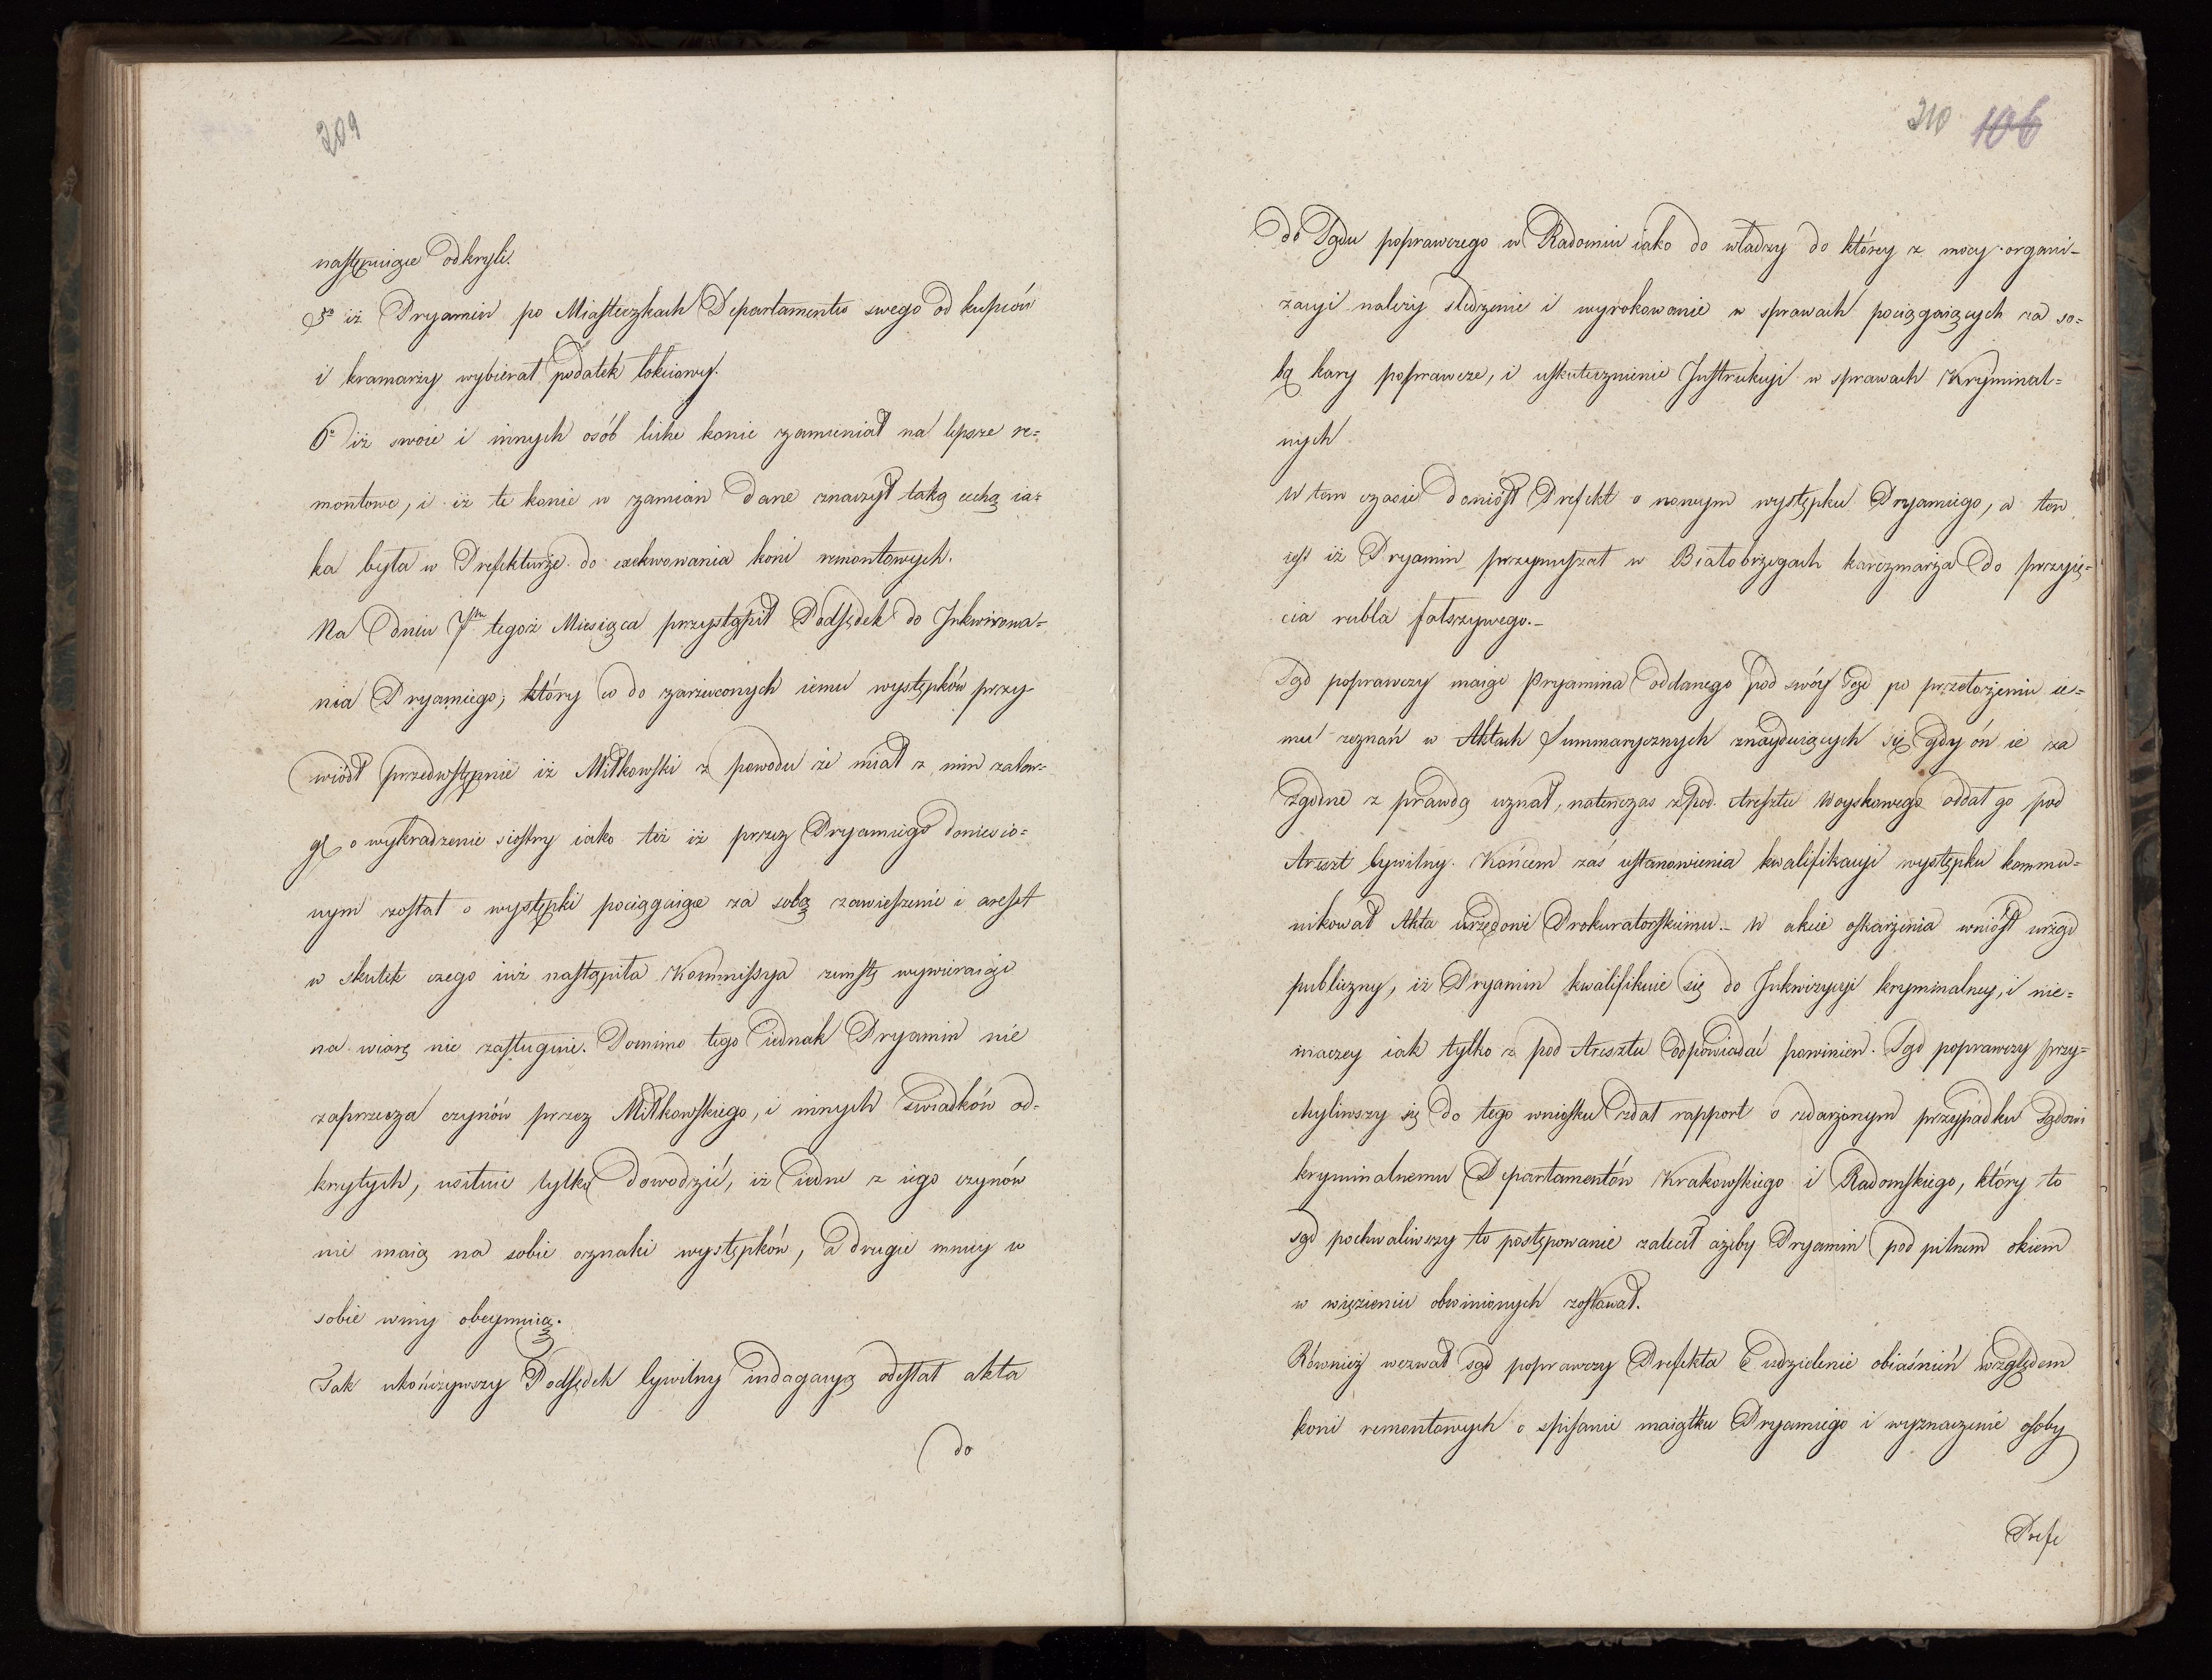 209
następuiące odkryli.
5° iż Pryamin po Miasteczkach Departamentu swego od kupców
i kramarzy wybierał podatek łokciowy.
6° iż swoie i innych osób liche konie zamieniał na lepsze re=
montowe, i iż te konie w zamian dane znaczył taką cechą ia=
ka była w Prefekturze do cechowania koni remontowych.
Na dniu 7m tegoż Miesiąca przystąpił Podsędek do Inkwirowa=
nia Pryamiego, który co do zarzuconych iemu występków przy=
wiódł przedwstępnie iż Miłkowski z powodu że miał z nim zatar=
gę o wykradzenie siostry iako też iż przez Pryamiego doniesio=
nym został o występki pociągaiące za sobą zawieszenie i areszt
w skutek czego iuż nastąpiła Kommissya zemstę wywieraiąc
na wiarę nie zasługuie. Pomimo tego iednak Pryamin nie
zaprzecza czynów przez Miłkowskiego, i innych świadków od=
krytych, usiłuie tylko dowodzić, iż iedne z iego czynów
nie maią na sobie oznaki występków, a drugie mniey w
sobie winy obeymuią.
Tak ukończywszy Podsędek Cywilny indagacyą odesłał akta
do
210 106
do Sądu poprawczego w Radomiu iako do władzy do którey z mocy organi=
zacyi należy śledzenie i wyrokowanie w sprawach pociągaiących za so=
bą kary poprawcze, i uskutecznienie Instrukcyi w sprawach Kryminal=
nych
W tem czasie doniósł Prefekt o nowym występku Pryamiego, a ten
iest iż Pryamin przymuszał w Białobrzegach karczmarza do przyię=
cia rubla fałszywego.
Sąd poprawczy maiąc Pryamina oddanego pod swóy Sąd po przełożeniu ie=
mu zeznań w Aktach Summarycznych znayduiących się gdy ón ie za
zgodne z prawdą uznał, natenczas z pod Aresztu Woyskowego oddał go pod
Areszt Cywilny. Końcem zaś ustanowienia kwalifikacyi występku kommu=
nikował Akta urzędowi Prokuratorskiemu. W akcie oskarżenia wniósł urząd
publiczny, iż Pryamin kwalifikuie się do Inkwizycyi kryminalney, i nie=
inaczey iak tylko z pod Aresztu odpowiadać powinien. Sąd poprawczy przy=
chyliwszy się do tego wniosku zdał rapport o zdarzonym przypadku Sądowi
kryminalnemu Departamentów Krakowskiego i Radomskiego, który to
sąd pochwaliwszy to postępowanie zalecił ażeby Pryamin pod pilnem okiem
w więzieniu obwinionych zostawał.
Również wezwał sąd poprawczy Prefekta o udzielenie obiaśnień względem
koni remontowych o spisanie maiątku Pryamiego i wyznaczenie osoby
Prefe